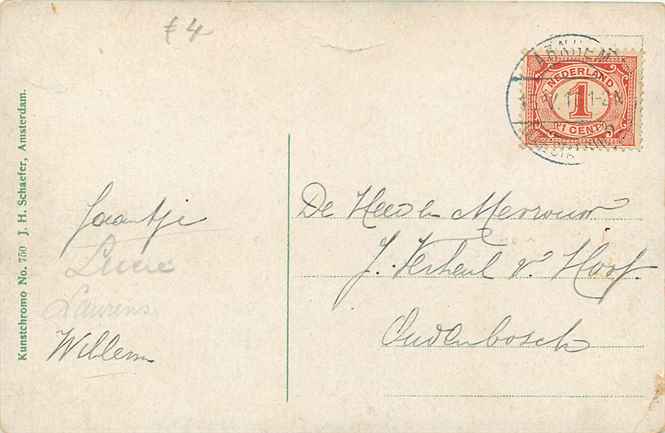 £4
ARNHEM
NEDERLAND
1
CENT
1-2 N
Kunstchromo No. 750 J. H. Schaefer, Amsterdam.
Jaantje
Lucie
Laurens
Willem
De Heer en Mevrouw
J. Verheul v. Hoof
Oudenbosch